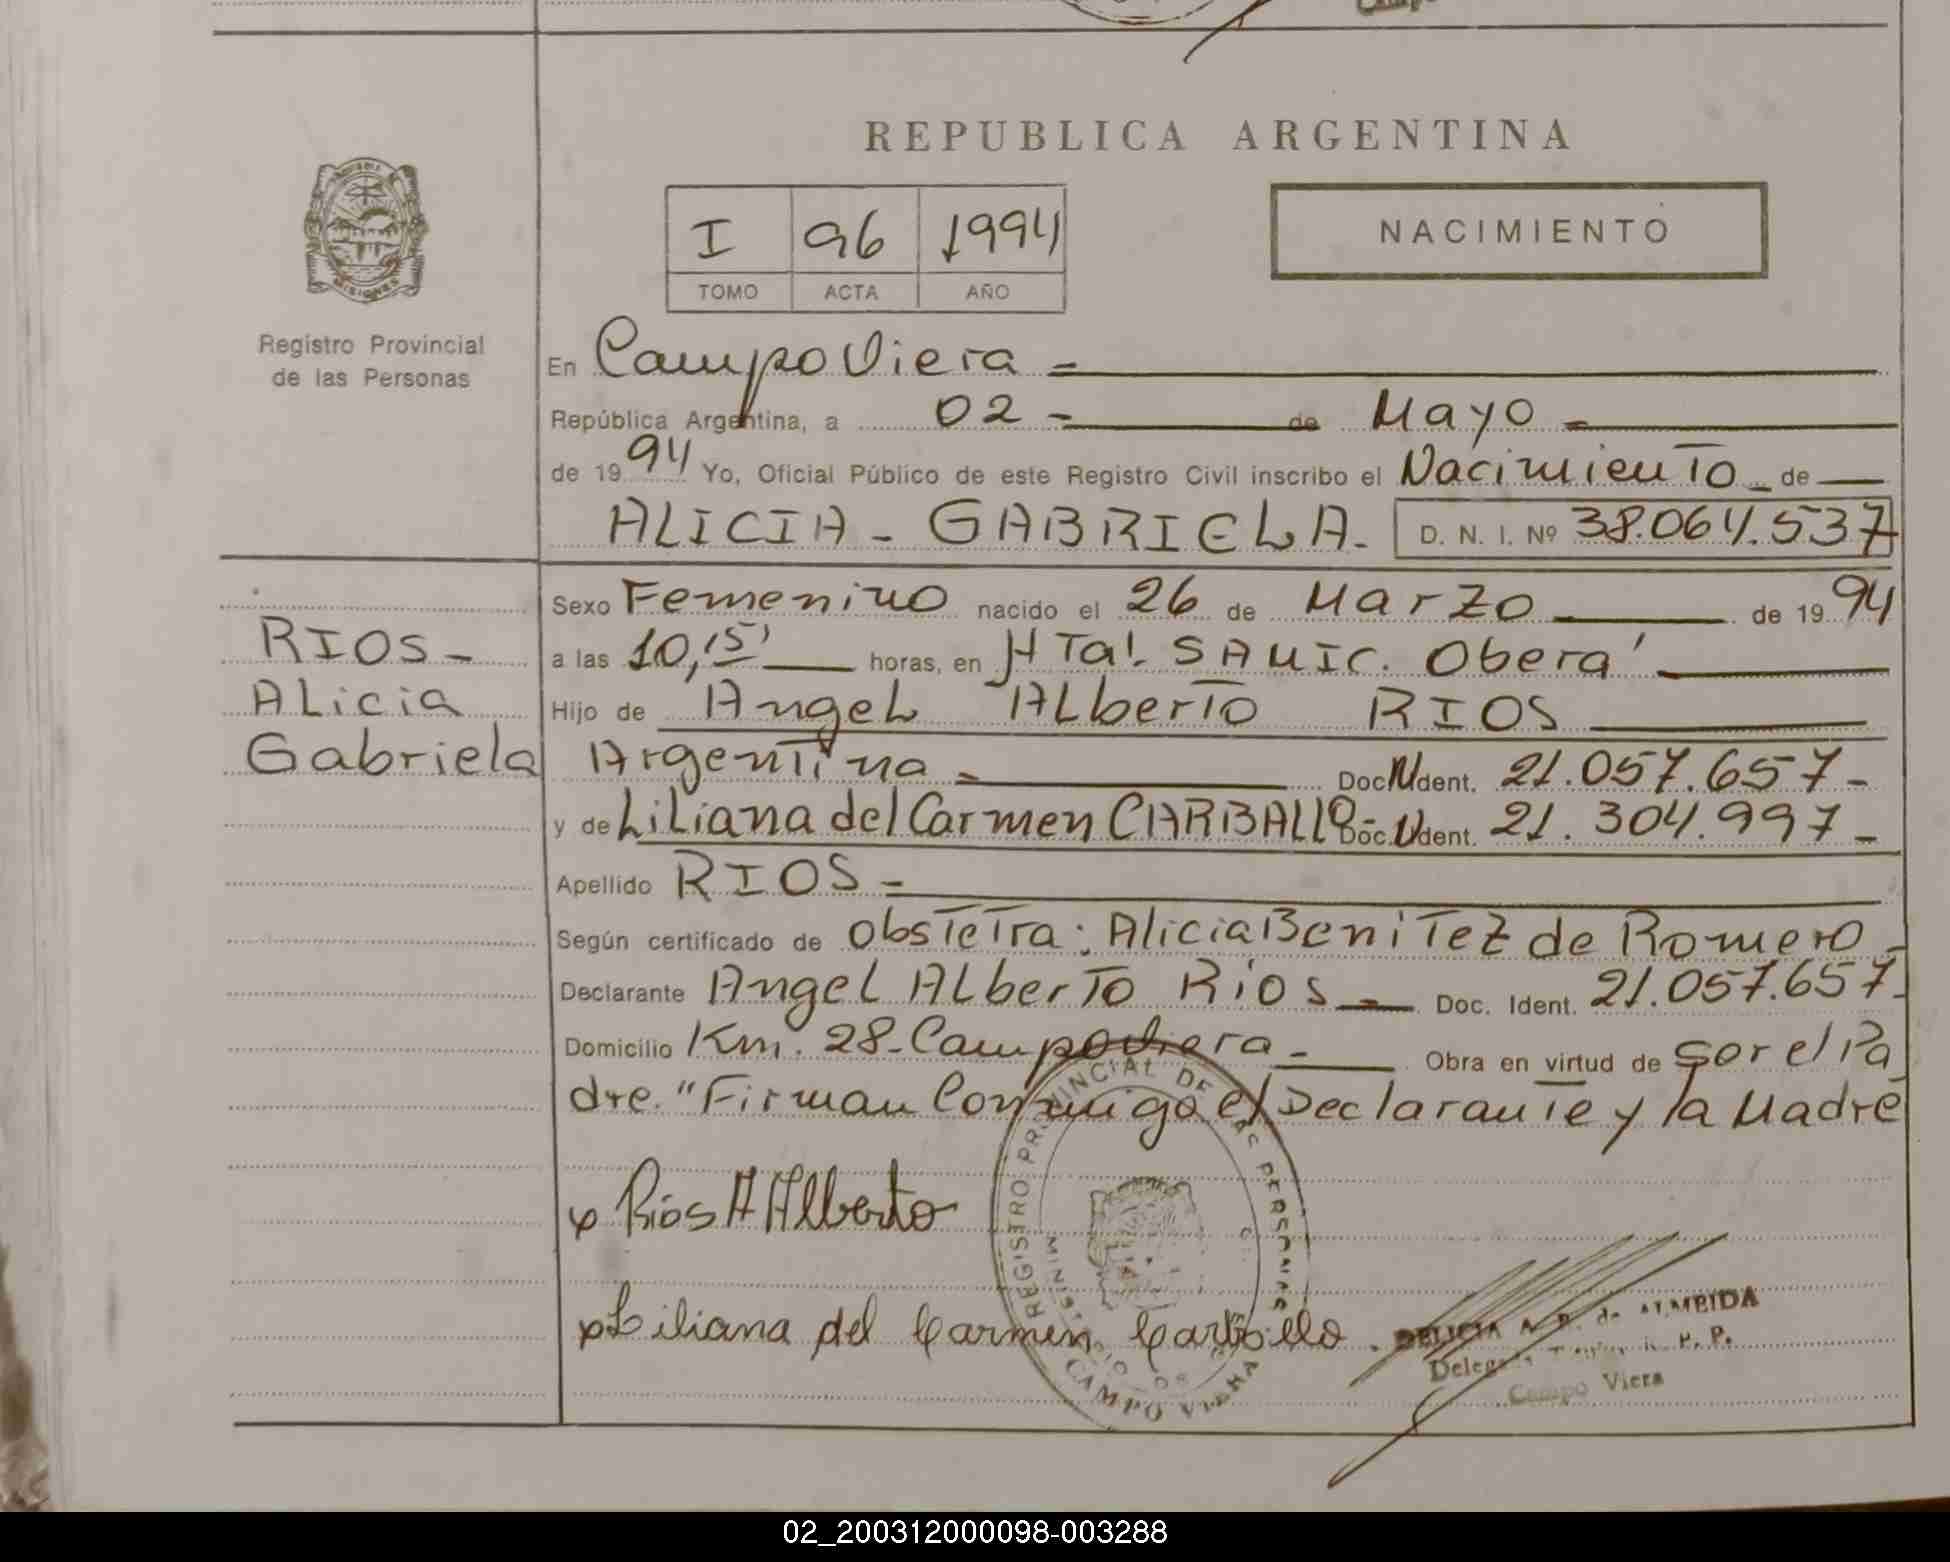 REPUBLICA ARGENTINA
I 96 1994
TOMO ACTA AÑO
NACIMIENTO
MISIONES
Registro Provincial
de las Personas
En Campo Viera =
República Argentina, a 02 - de Mayo =
de 1994 Yo, Oficial Público de este Registro Civil inscribo el Nacimiento - de
ALICIA - GABRIELA - D. N. I. Nº 38.064.537
Sexo Femenino nacido el 26 de Marzo de 1994
a las 10,15' horas, en HTal. SAMIC. Oberá
Hijo de Angel Alberto RIOS
Argentina = Doc. Ident. 21.057.657-
y de Liliana del Carmen CARBALLO - Doc. Ident. 21.304.997-
Apellido RIOS =
Según certificado de Obstetra: Alicia Benitez de Romero -
Declarante Angel Alberto Rios - Doc. Ident. 21.057.657-
Domicilio Km. 28- Campo Viera - Obra en virtud de Ser el Pa
dre. "Firman Conmigo el Declarante y la Madre
RIOS -
Alicia
Gabriela
Rios A Alberto
Liliana del Carmen Carballo.
REGISTRO PROVINCIAL DE LAS PERSONAS
CAMPO VIERA
DELICIA A. de ALMEIDA
R. P.
Campo Viera
02_200312000098-003288